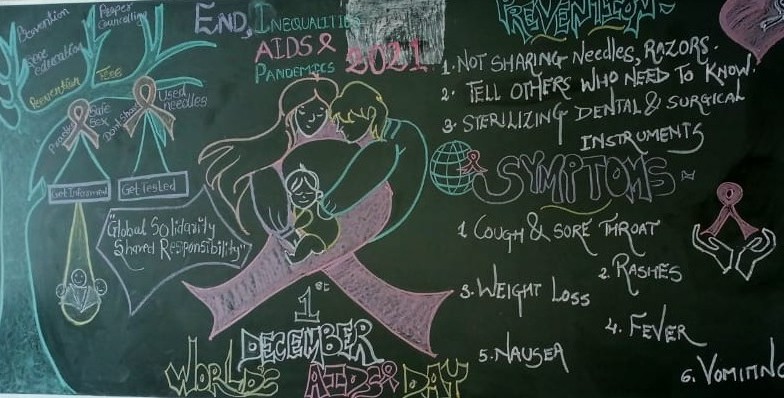 Prevention
Proper
Councilling
Sex
education
Prevention
Free
Safe
Sex
Practice
Don't Share
Used
needles
Get Informed
Get Tested
"Global Solidarity
Shared Responsibility"
END, INEQUALITIES
AIDS &
PANDEMICS
2021
1ST
DECEMBER
WORLD'S AIDS DAY
PREVENTION-
1. NOT SHARING Needles, RAZORS.
2. TELL OTHERS WHO NEED TO KNOW.
3. STERILIZING DENTAL & SURGICAL
INSTRUMENTS
SYMPTOMS-
1. COUGH & SORE THROAT
2. RASHES
3. WEIGHT LOSS
4. FEVER
5. NAUSEA
6. VOMITING